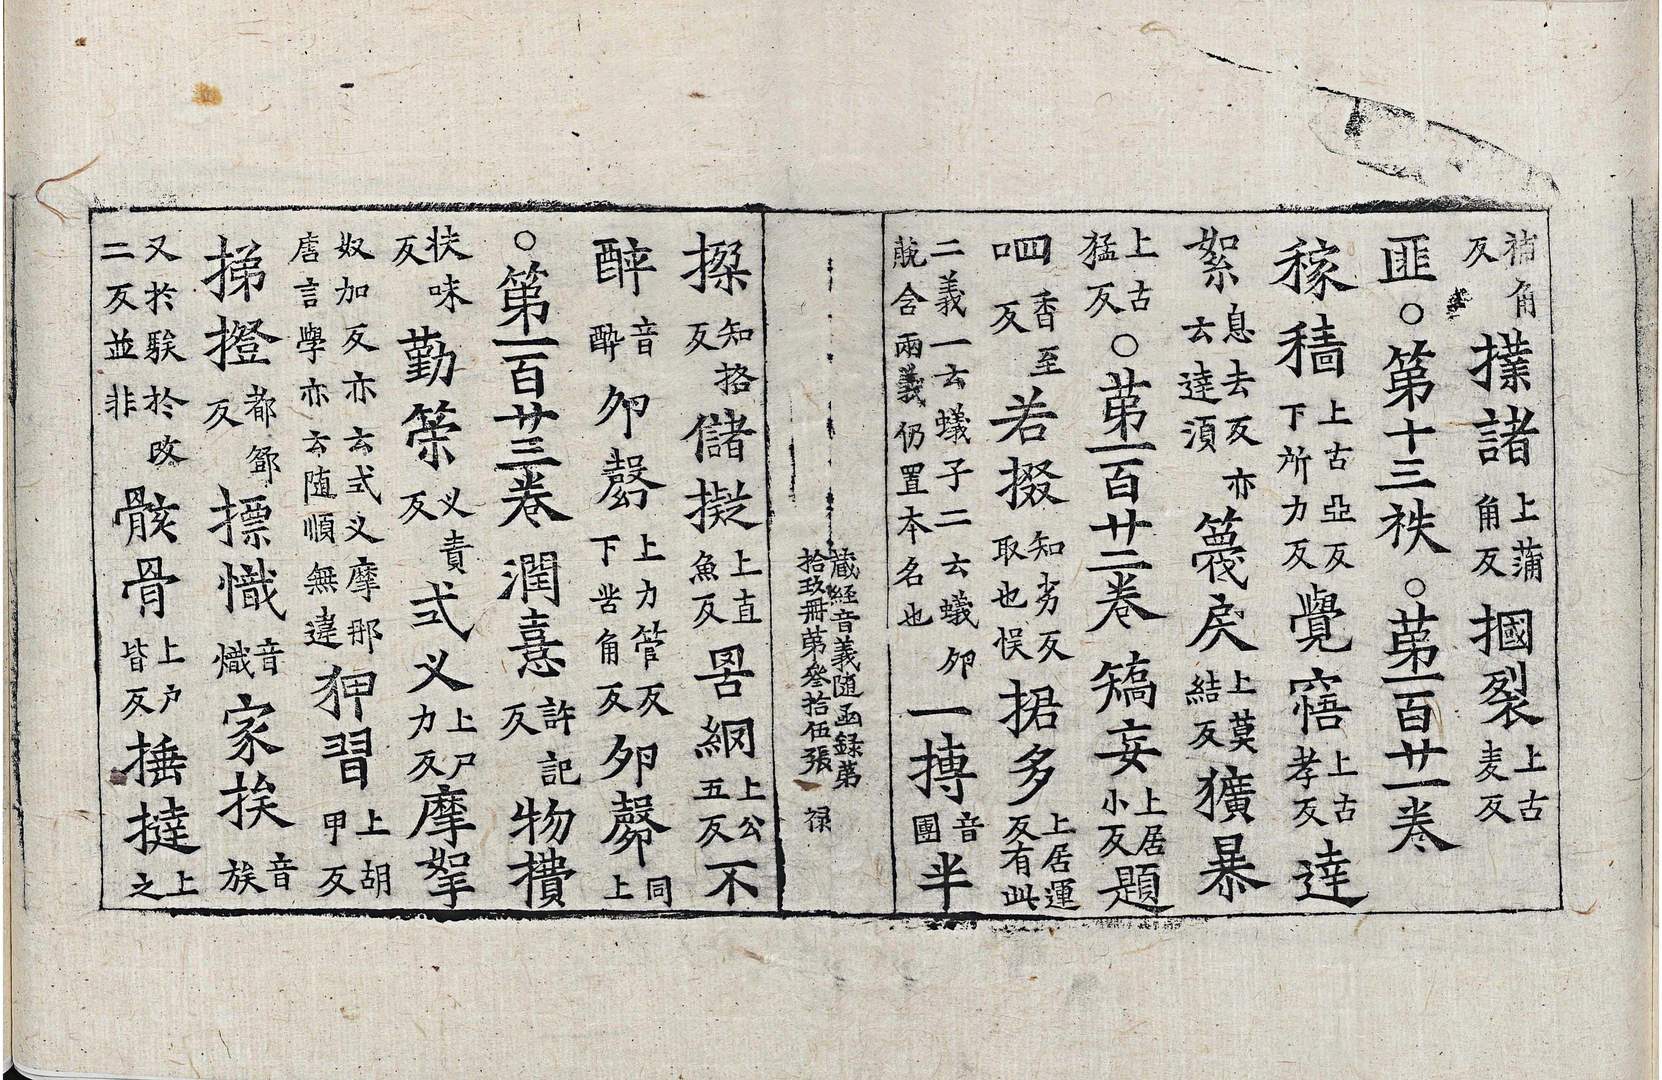 補角反 㩧諸 上蒲角反 摑裂 上古麦反
匪○第十三袟○苐一百廿一卷
稼穡 上古亞反下所力反 覺寤 上古孝反 達
絮 息去反亦云達湏 篾戾 上莫結反 獷暴
上古猛反 ○苐一百廿二卷 矯妄 上居小反 題
呬 四香至反 若掇 知劣反取也悮 捃多 上居運反有此
二義一云蟻子二云蟻夘䏧含兩義仍置本名也 一摶 音團 半
藏經音義随函録苐
拾玖冊苐叄拾伍張 禄
搩 知挌反 儲擬 上直魚反 罟網 上公五反 不
醉 音酔 夘鷇 上力管反下苦角反 夘鷇 同上
○第一百廿三卷 潤憙 許記反 物攢
扶味反 勤策 义責反 式义 上尸力反 摩挐
奴加反亦云式义摩那唐言學亦云随順無違 狎習 上胡甲反
挮撜 都鄧反 摽幟 音熾 家挨 音族
又於騃於改二反並非 骸骨 上户皆反 捶撻 上之